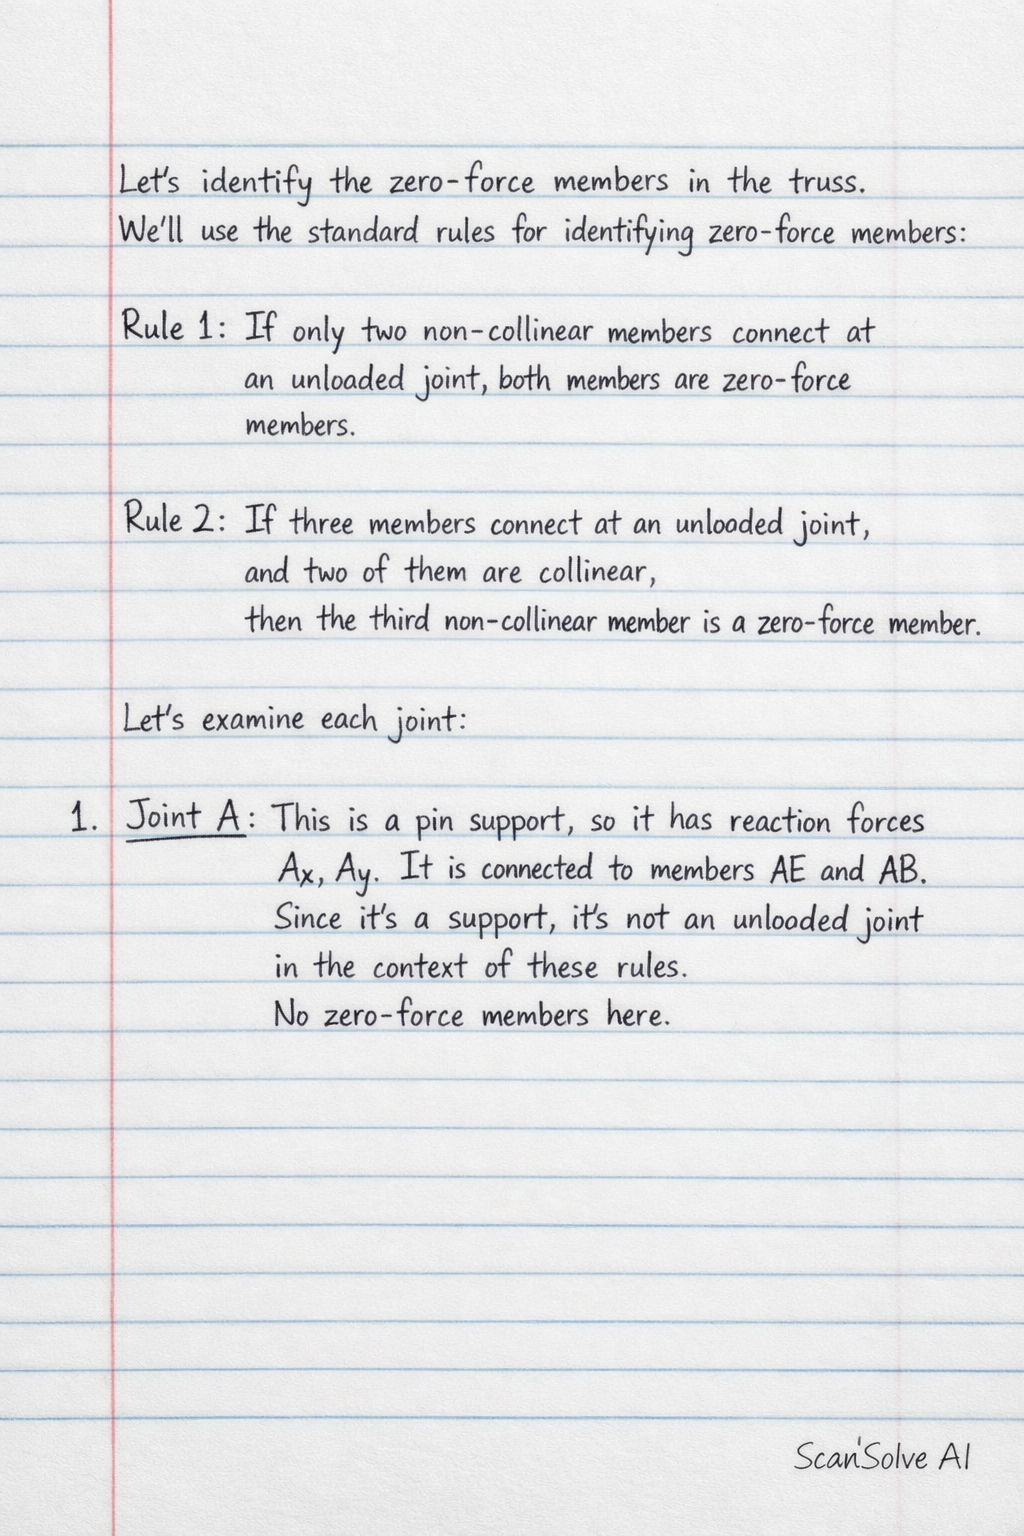 Let's identify the zero-force members in the truss.
We'll use the standard rules for identifying zero-force members:
Rule 1: If only two non-collinear members connect at
an unloaded joint, both members are zero-force
members.
Rule 2: If three members connect at an unloaded joint,
and two of them are collinear,
then the third non-collinear member is a zero-force member.
Let's examine each joint:
1. Joint A: This is a pin support, so it has reaction forces
Ax, Ay. It is connected to members AE and AB.
Since it's a support, it's not an unloaded joint
in the context of these rules.
No zero-force members here.
Scan'Solve AI